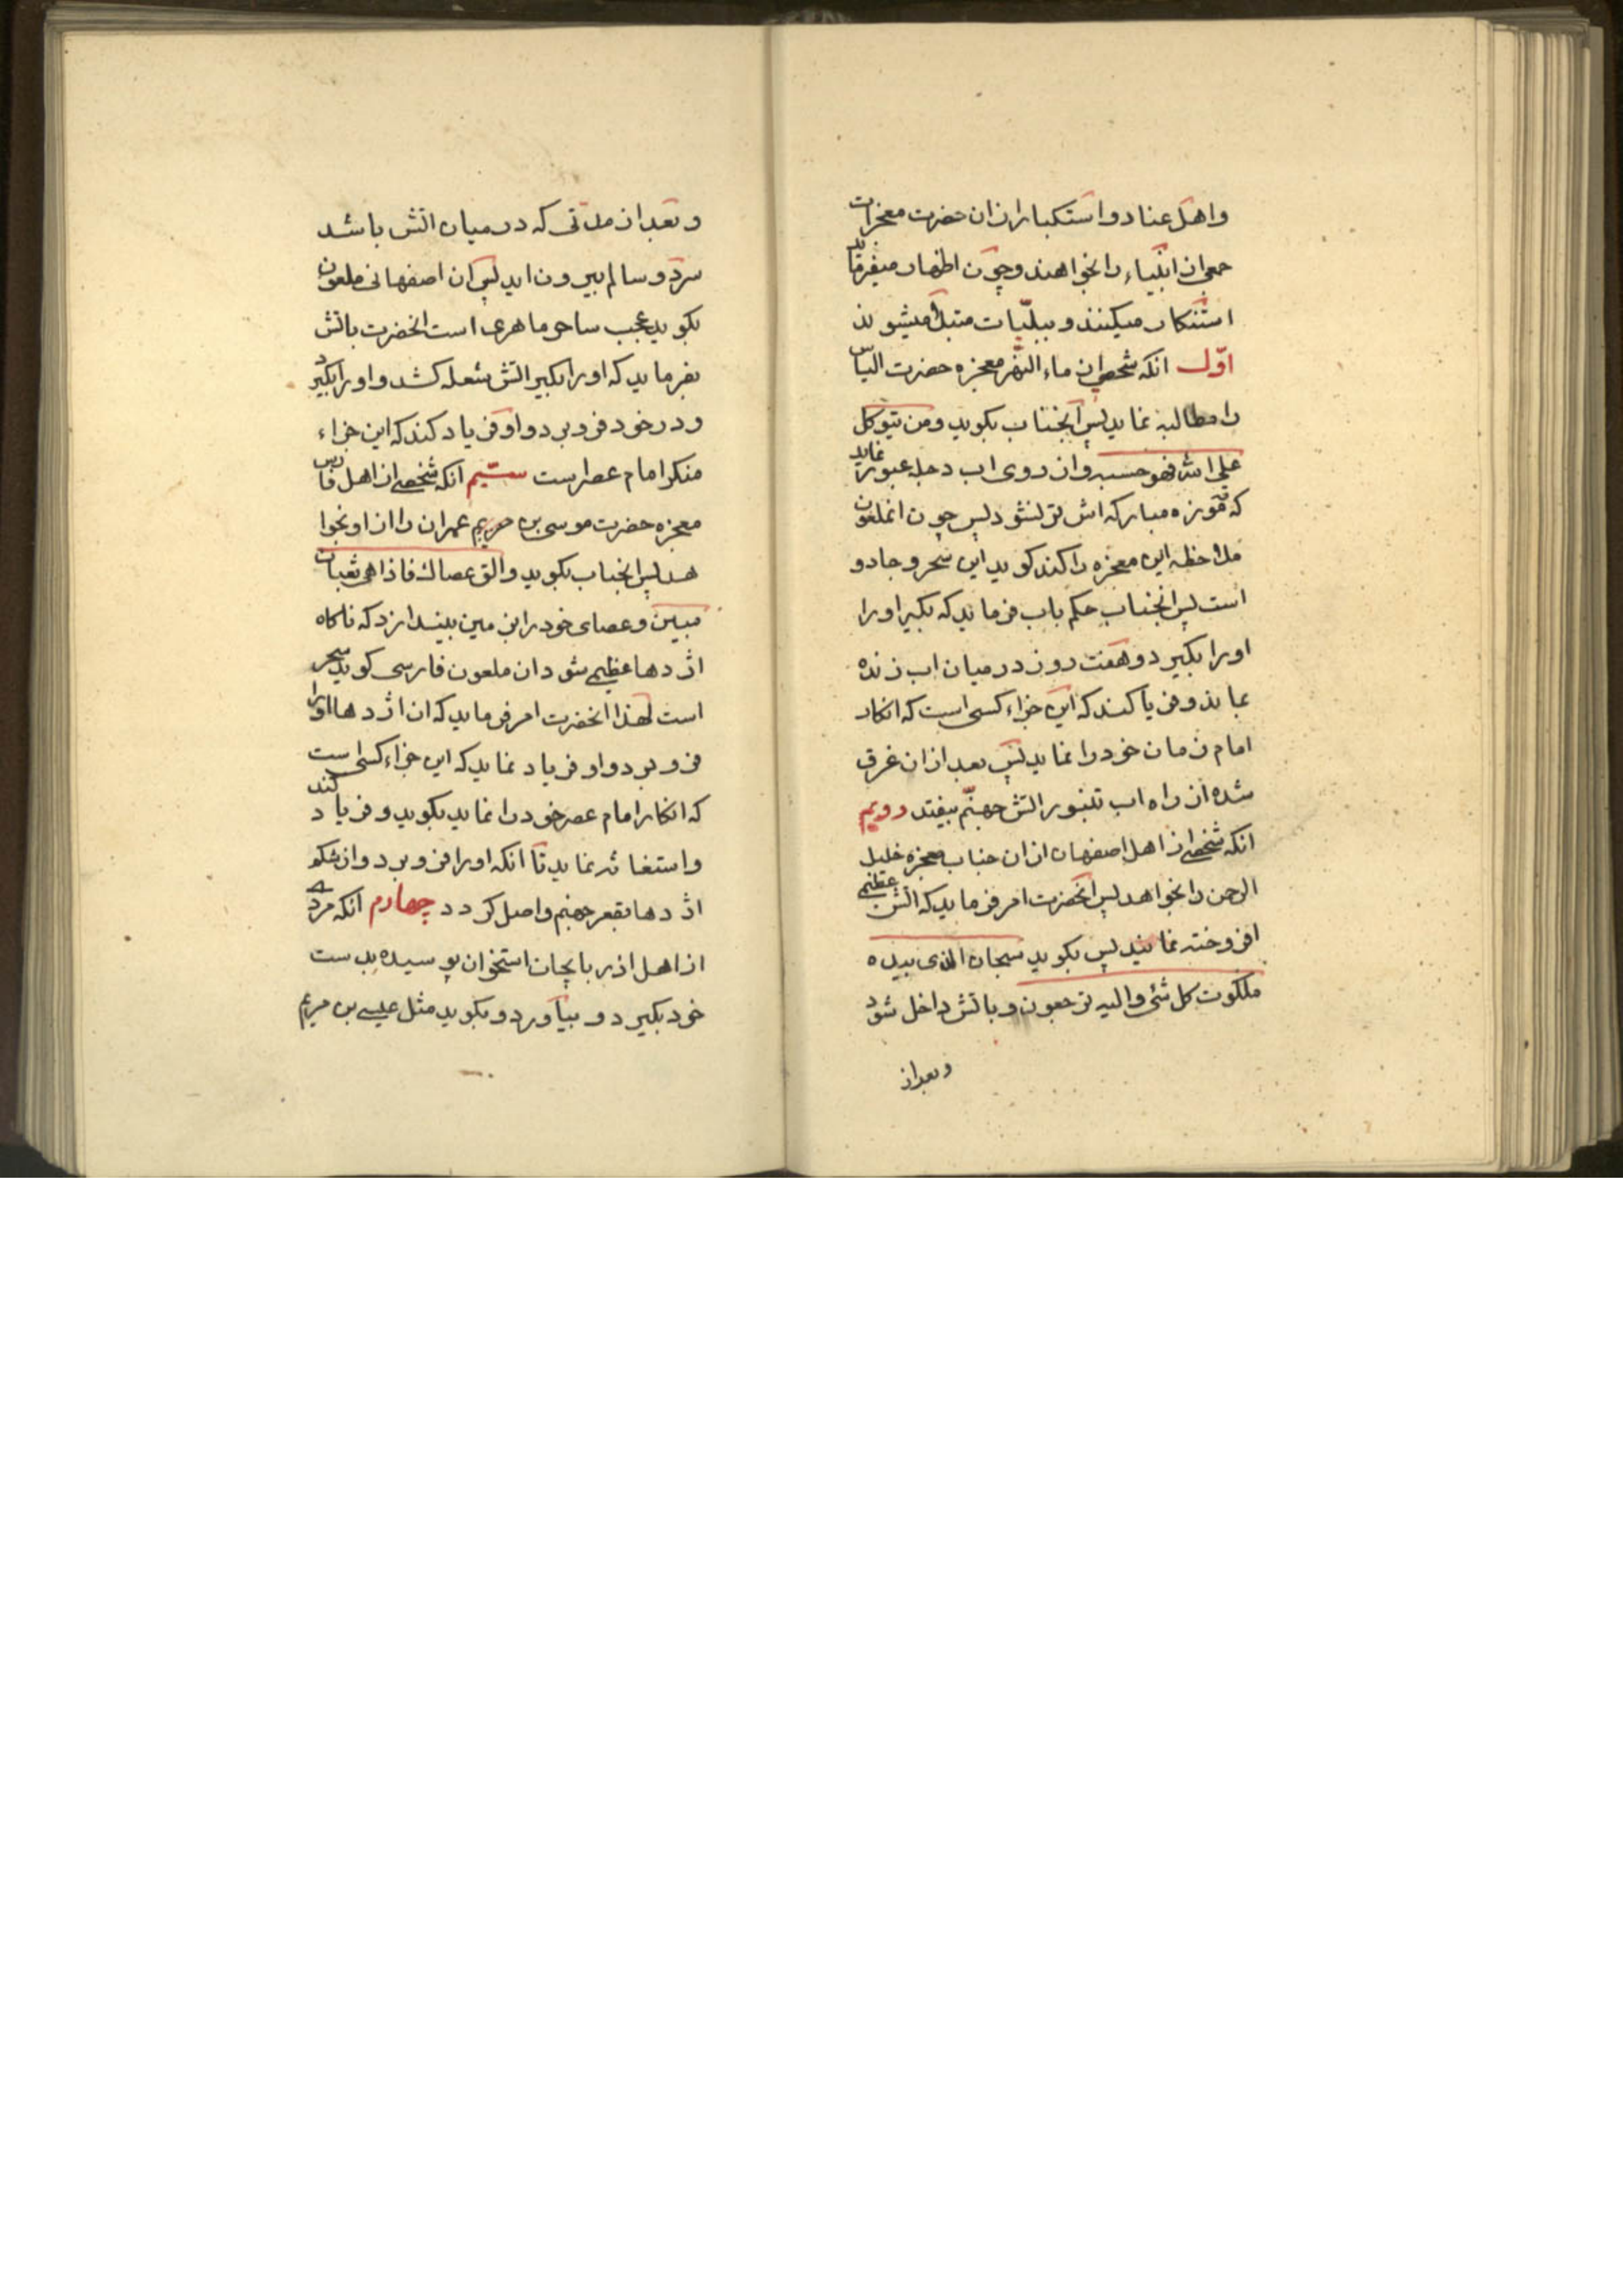 واهل عناد واستکبار ازان حضرت معجزات
جمعی از انبیاء را بخواهند وچون اظهار میفرماید
استنکار میکنند و ببلیّات مبتلا میشوند
اوّل انکه شخصی از ماء النهر معجزه حضرت الیاس
را مطالبه نماید پس آنجناب بکوید ومن یتوکل
علی الله فهو حسبه واز روی اب دجله عبور نماید
که قوزه مبارکه اش تر نشود پس چون انملعون
ملاحظه این معجزه را کند کوید این سحر و جادو
است پس انجناب حکم باب فرماید که بکیر اورا
اورا بکیرد و هفت روز در میان اب زنده
بماند وفریا کند که این جزاء کسی است که انکار
امام زمان خود را نماید پس بعد ازان غرق
شده از راه اب تنبور اتش جهنّم بیفتد دویم
انکه شخصی از اهل اصفهان ازان جناب معجزه خلیل
الرحمن را بخواهد پس انحضرت امر فرماید که اتش عظیمی
افروخته نمایند پس بکوید سبحان الذی بیده
ملکوت کل شئ والیه ترجعون وباتش داخل شود
وبعداز
وبعد از مدتی که در میان اتش باشد
سرد و سالم بیرون اید پس ان اصفهانی ملعون
بکوید عجب ساحر ماهری است انحضرت باتش
بفرماید که اورا بکیر اتش شعله کشد و اورا بکیرد
ودر خود فرو برد و او فریاد کند که این جزاء
منکر امام عصر است ستیم انکه شخصی از اهل فارس
معجزه حضرت موسی بن مریم عمران را از او بخوا
هد پس انجناب بکوید والق عصاک فاذا هی ثعبان
مبین وعصای خود را بزمین بیندازد که ناکاه
اژدها عظیمی شود ان ملعون فارسی کوید سحر
است لهذا انحضرت امر فرماید که ان اژدها اورا
فرو برد واو فریاد نماید که این جزاء کسی است
که انکار امام عصر خود را نماید بکوید و فریاد کند
واستغاثه نماید تا انکه اورا فرو برد واز شکم
اژدها بقعر جهنم واصل کردد چهارم انکه مردی
از اهل اذربایجان استخوان پوسیده بدست
خود بکیرد و بیآورد و بکوید مثل عیسی بن مریم